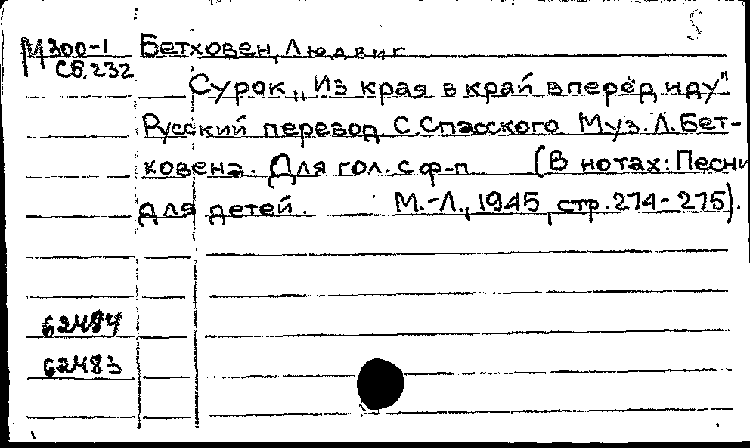 М300-1 Бетховен, Людвиг
Сб.232
Сурок „Из края в край вперёд иду"
Русский перевод С. Спасского Муз. Л. Бет-
ховена. Для гол. с ф-п. (В нотах: Песни
для детей. М.-Л., 1945, стр. 274-275).
62484
62483